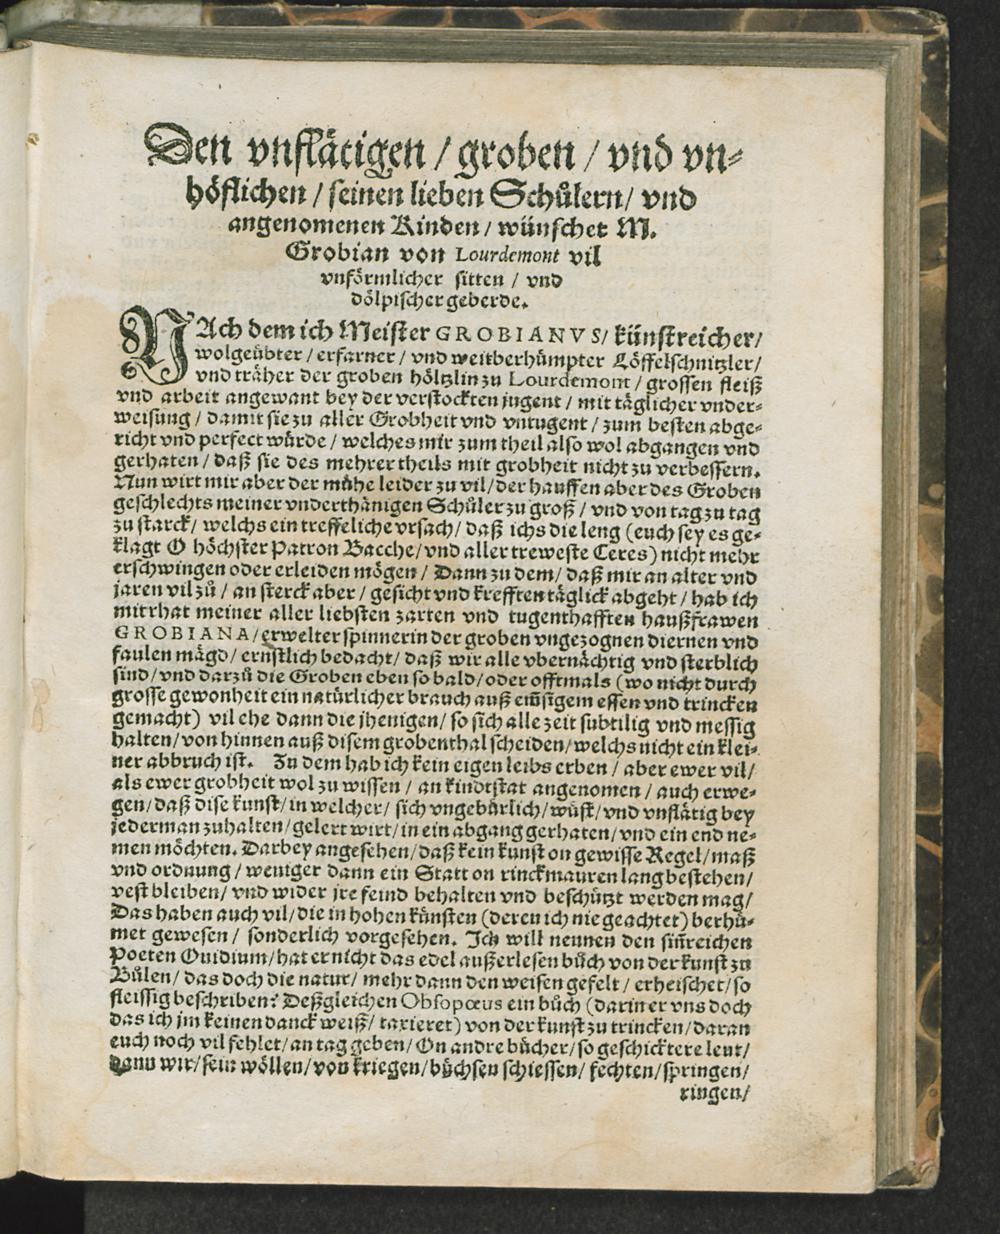 Den vnflätigen / groben / vnd vn⸗
höflichen / seinen lieben Schůlern / vnd
angenomenen Kinden / wünschet M.
Grobian von Lourdemont vil
vnförmlicher sitten / vnd
dölpischer geberde.
NAch dem ich Meister GROBIANVS / künstreicher /
wolgeübter / erfarner / vnd weitberhümpter Löffelschnitzler /
vnd träher der groben höltzlin zu Lourdemont / grossen fleiß
vnd arbeit angewant bey der verstockten jugent / mit täglicher vnder⸗
weisung / damit sie zu aller Grobheit vnd vntugent / zum besten abge⸗
richt vnd perfect würde / welches mir zum theil also wol abgangen vnd
gerhaten / daß sie des mehrer theils mit grobheit nicht zu verbessern.
Nun wirt mir aber der mühe leider zu vil / der hauffen aber des Groben
geschlechts meiner vnderthänigen Schůler zu groß / vnd von tag zu tag
zu starck / welchs ein treffeliche vrsach / daß ichs die leng (euch sey es ge⸗
klagt O höchster Patron Bacche / vnd aller treweste Ceres) nicht mehr
erschwingen oder erleiden mögen / Dann zu dem / daß mir an alter vnd
jaren vil zů / an sterck aber / gesicht vnd krefften täglick abgeht / hab ich
mit rhat meiner aller liebsten zarten vnd tugenthafften haußfrawen
GROBIANA / erwelter spinnerin der groben vngezognen diernen vnd
faulen mägd / ernstlich bedacht / daß wir alle vbernächtig vnd sterblich
sind / vnd darzů die Groben eben so bald / oder offtmals (wo nicht durch
grosse gewonheit ein natürlicher brauch auß em̃sigem essen vnd trincken
gemacht) vil ehe dann die jhenigen / so sich alle zeit subtilig vnd messig
halten / von hinnen auß disem grobenthal scheiden / welchs nicht ein klei⸗
ner abbruch ist. Zu dem hab ich kein eigen leibs erben / aber ewer vil /
als ewer grobheit wol zu wissen / an kindtstat angenomen / auch erwe⸗
gen / daß dise kunst / in welcher / sich vngebürlich / wüst / vnd vnflätig bey
jederman zuhalten / gelert wirt / in ein abgang gerhaten / vnd ein end ne⸗
men möchten. Darbey angesehen / daß kein kunst on gewisse Regel / maß
vnd ordnung / weniger dann ein Statt on rinckmauren lang bestehen /
vest bleiben / vnd wider jre feind behalten vnd beschützt werden mag /
Das haben auch vil / die in hohen künsten (deren ich nie geachtet) berhü⸗
met gewesen / sonderlich vorgesehen. Ich will nennen den sin̄reichen
Poeten Ouidium / hat er nicht das edel außerlesen bůch von der kunst zu
Bůlen / das doch die natur / mehr dann den weisen gefelt / erheischet / so
fleissig beschriben? Deßgleichen Obsopœus ein bůch (darin er vns doch
das ich jm keinen danck weiß / taxieret) von der kunst zu trincken / daran
euch noch vil fehlet / an tag geben / On andre bücher / so geschicktere leut /
dann wir / sein wöllen / von kriegen / büchsen schiessen / fechten / springen /
ringen /